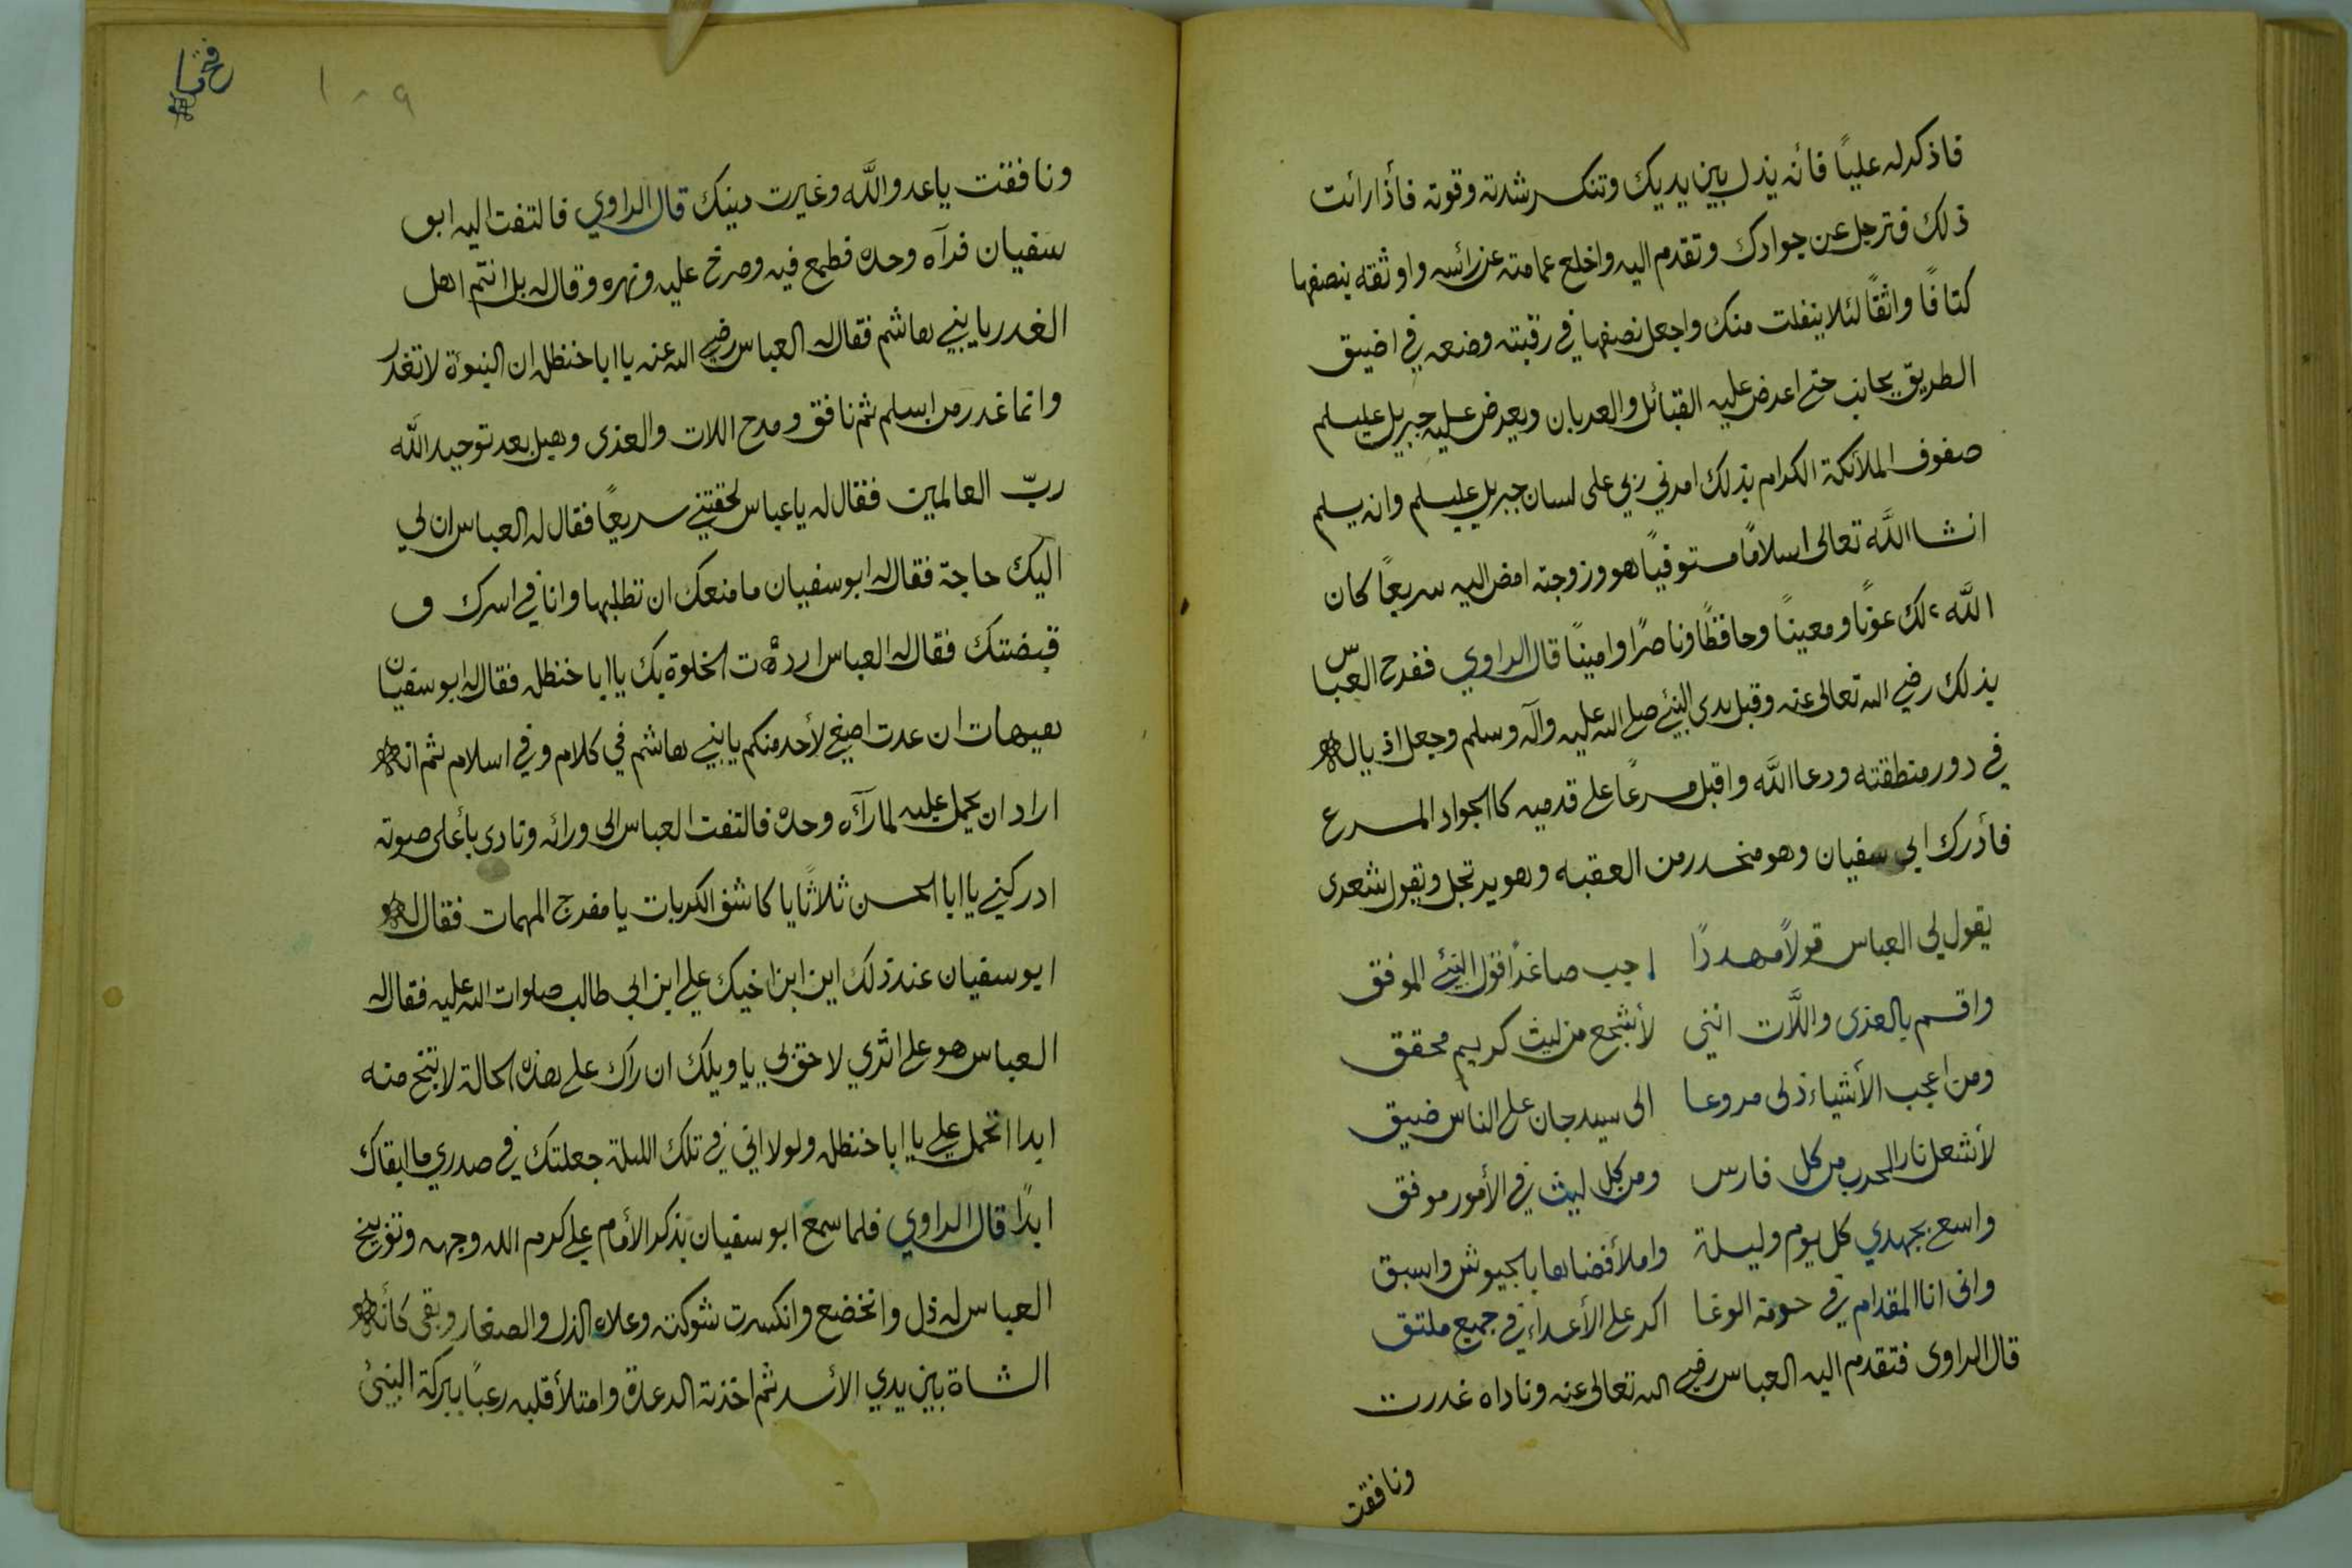 فاذكر له عليًا فأنه يذل بين يديك وتنكسر شدته وقوته فأذا رائت
ذلك فترجل عن جوادك وتقدم اليه واخلع عمامته عن رائسه واوثقه بنصفها
كتافًا واثقًا لئلا ينفلت منك واجعل نصفها في رقبته وضعه في اضيق
الطريق بجانب حتى اعرض عليه القبائل والعربان ويعرض عليه جبريل عليسلم
صفوف الملائكة الكرام بذلك امرني ربي على لسان جبريل عليسلم وانه يسلم
انشا الله تعالى اسلامًا مستوفيًا هو وزوجته امض اليه سريعًا كان
الله لك عونًا ومعينًا وحافظًا وناصرًا وامينًا قال الراوي ففرح العباس
بذلك رضي الله تعالى عنه وقبل يدى النبئ صلى الله عليه وآله وسلم وجعل اذياله
في دور منطقته ودعا الله واقبل مسرعًا على قدميه كا الجواد المسرع
فأدرك ابي سفيان وهو منحدر من العقبه وهو يرتجل ويقول شعرى
يقول لي العباس قولًا مهددًا اجب صاغدًا قول النبئ الموفق
واقسم بالعزى واللّات انني لأشجع من ليث كريم محقق
ومن اعجب الأشياء ذلى مروعا الى سيد جان على الناس ضيق
لأشعل نار الحرب من كل فارس ومن كل ليث في الأمور موفق
واسع بجهدي كل يوم وليلة واملأ فضاها بالجيوش واسبق
وانى انا المقدام في حومة الوغا اكر على الأعداء في جميع ملتق
قال الراوى فتقدم اليه العباس رضي الله تعالى عنه وناداه غدرت
ونافقت
١٠٩
ونافقت يا عدو الله وغيرت دينك قال الراوي فالتفت اليه ابو
سفيان فرآه وحده فطمع فيه وصرخ عليه ونهره وقال له بل انتم اهل
الغدر يا بني هاشم فقال له العباس رضي الله عنه يا ابا حنظله ان النبوة لا تغدر
وانما غدر من اسلم ثم نافق ومدح اللات والعزى وهبل بعد توحيد الله
ربّ العالمين فقال له يا عباس لحقتني سريعًا فقال له العباس ان لي
اليك حاجة فقال له ابو سفيان ما منعك ان تطلبها وانا في اسرك و
قبضتك فقال له العباس اردت الخلوة بك يا ابا خنظله فقال له ابو سفيان
هيهات ان عدت اصغي لأحد منكم يا بني هاشم في كلام وفي اسلام ثم انه
اراد ان يحمل عليه لما رآه وحده فالتفت العباس الى ورائه ونادى بأعلى صوته
ادركني يا ابا الحسن ثلاثًا يا كاشف الكربات يا مفرج المهمات فقال له
ابو سفيان عند ذلك اين ابن اخيك علي ابن ابي طالب صلوات الله عليه فقال له
العباس هو على اثري لاحق بي يا ويلك ان راك على هذه الحالة لا تنج منه
ابدا اتحمل علي يا ابا خنظله ولولا اني في تلك الليلة جعلتك في صدري ما ابقاك
ابدًا قال الراوي فلما سمع ابو سفيان بذكر الأمام علي كرم الله وجهه وتوبيخ
العباس له ذل وانخضع وانكسرت شوكته وعلاه الذل والصغار وبقى كأنه
الشاة بين يدي الأسد ثم اخذته الرعدة وامتلأ قلبه رعبًا ببركة النبئ